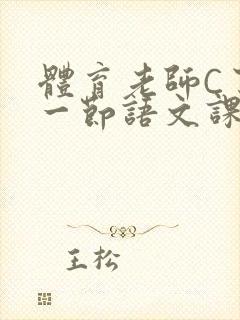 體育老師C
一節語文課
王松